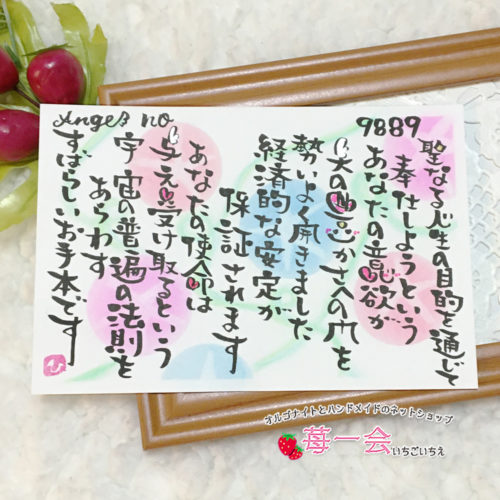 Anges no
9889
聖なる人生の目的を通じて
奉仕しようという
あなたの意欲が
天の豊かさへの門を
勢いよく開きました
経済的な安定が
保証されます
あなたの使命は
与え受け取るという
宇宙の普遍の法則を
あらわす
すばらしいお手本です
オルゴナイトとハンドメイドのネットショップ
苺一会
いちごいちえ